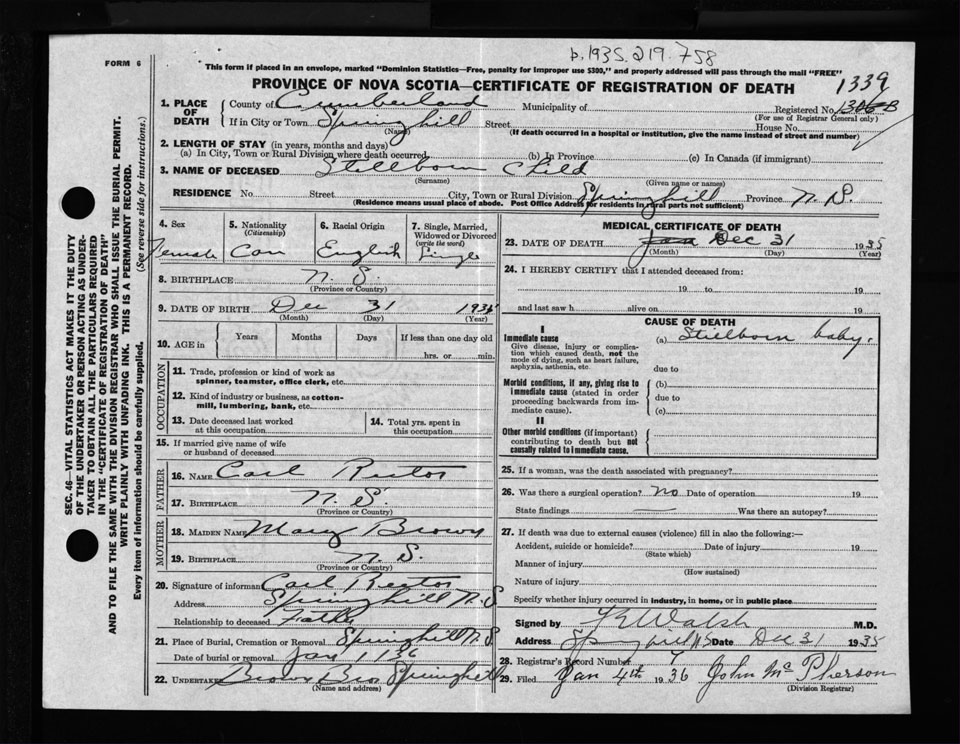 b. 1935. 219. 758
FORM 6
This form if placed in an envelope, marked "Dominion Statistics—Free, penalty for improper use $300," and properly addressed will pass through the mail "FREE"
PROVINCE OF NOVA SCOTIA—CERTIFICATE OF REGISTRATION OF DEATH
1339
1. PLACE OF DEATH
County of Cumberland Municipality of Registered No. 1306-B
(For use of Registrar General only)
If in City or Town Springhill Street House No.
(Name) (If death occurred in a hospital or institution, give the name instead of street and number)
2. LENGTH OF STAY (in years, months and days)
(a) In City, Town or Rural Division where death occurred (b) In Province (c) In Canada (if immigrant)
3. NAME OF DECEASED Stillborn Child
(Surname) (Given name or names)
RESIDENCE No. Street City, Town or Rural Division Springhill Province N. S.
(Residence means usual place of abode. Post Office Address for residents in rural parts not sufficient)
4. Sex 5. Nationality (Citizenship) 6. Racial Origin 7. Single, Married, Widowed or Divorced (write the word)
Female Can English Single
8. BIRTHPLACE N. S.
(Province or Country)
9. DATE OF BIRTH Dec 31 1935
(Month) (Day) (Year)
10. AGE in Years Months Days If less than one day old
hrs. or min.
OCCUPATION
11. Trade, profession or kind of work as
spinner, teamster, office clerk, etc.
12. Kind of industry or business, as cotton-
mill, lumbering, bank, etc.
13. Date deceased last worked
at this occupation
14. Total yrs. spent in
this occupation
15. If married give name of wife
or husband of deceased
FATHER
16. NAME Carl Rector
17. BIRTHPLACE N. S.
(Province or Country)
MOTHER
18. MAIDEN NAME Mary Brown
19. BIRTHPLACE N. S.
(Province or Country)
20. Signature of informant Carl Rector
Address Springhill N. S
Relationship to deceased Father
21. Place of Burial, Cremation or Removal Springhill N. S
Date of burial or removal Jan 1 1936
22. UNDERTAKER Brown Bros Springhill
(Name and address)
MEDICAL CERTIFICATE OF DEATH
23. DATE OF DEATH Dec 31 1935
(Month) (Day) (Year)
24. I HEREBY CERTIFY that I attended deceased from:
19 to 19
and last saw h alive on 19
CAUSE OF DEATH
I
Immediate cause (a) Stillborn baby.
Give disease, injury or complica-
tion which caused death, not the
mode of dying, such as heart failure,
asphyxia, asthenia, etc.
due to
Morbid conditions, if any, giving rise to (b)
immediate cause (stated in order due to
proceeding backwards from im-
mediate cause). (c)
II
Other morbid conditions (if important)
contributing to death but not
causally related to immediate cause.
25. If a woman, was the death associated with pregnancy?
26. Was there a surgical operation? no Date of operation 19
State findings — Was there an autopsy?
27. If death was due to external causes (violence) fill in also the following:—
Accident, suicide or homicide? Date of injury 19
(State which)
Manner of injury
(How sustained)
Nature of injury
Specify whether injury occurred in industry, in home, or in public place
Signed by Walsh M.D.
Address Springhill NS Date Dec 31 1935
28. Registrar's Record Number
29. Filed Jan 4th 1936 John McPherson
(Division Registrar)
SEC. 46—VITAL STATISTICS ACT MAKES IT THE DUTY
OF THE UNDERTAKER OR PERSON ACTING AS UNDER-
TAKER TO OBTAIN ALL THE PARTICULARS REQUIRED
IN THE "CERTIFICATE OF REGISTRATION OF DEATH"
AND TO FILE THE SAME WITH THE DIVISION REGISTRAR WHO SHALL ISSUE THE BURIAL PERMIT.
WRITE PLAINLY WITH UNFADING INK. THIS IS A PERMANENT RECORD.
Every item of information should be carefully supplied. (See reverse side for instructions.)